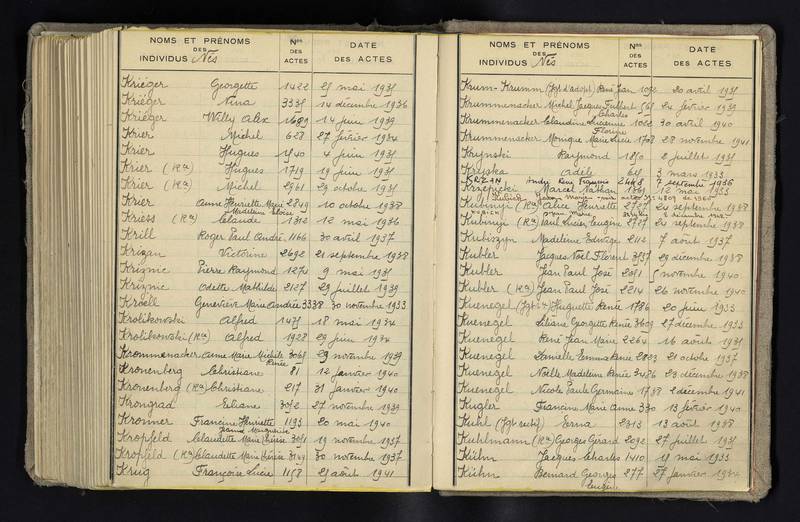 NOMS ET PRÉNOMS
DES
INDIVIDUS Nés
Nos
DES
ACTES
DATE
DES ACTES
Kriéger Georgette 1422 25 mai 1935
Kriéger Nina 3335 14 décembre 1936
Kriéger Willy Alex 1689 14 juin 1939
Krier Michel 628 27 février 1934
Krier Hugues 1540 4 juin 1935
Krier (Ron) Hugues 1719 19 juin 1935
Krier (Ron) Michel 2961 29 octobre 1935
Krier Anne Henriette Marie 2849 10 octobre 1938
Madeleine Eloïse
Kriess (Ron) Claude 1312 12 mai 1936
Krill Roger Paul André 1166 30 avril 1937
Krizan Victorine 2692 21 septembre 1938
Kriznic Pierre Raymond 1271 9 mai 1935
Kriznic Odette Mathilde 2127 29 juillet 1939
Kroell Geneviève Marie Andrée 3338 30 novembre 1933
Krolikowski Alfred 1475 18 mai 1934
Krolikowski (Ron) Alfred 1928 29 juin 1934
Krommenacker Anne Marie Michèle 3065 29 novembre 1939
Renée
Kronenberg Christiane 81 12 janvier 1940
Kronenberg (Ron) Christiane 217 31 janvier 1940
Krongrad Eliane 3052 27 novembre 1939
Kronner Francine Henriette 1193 20 mai 1940
Jeanne Marguerite
Kropfeld Claudette Marie Thérèse 3051 19 novembre 1937
Kropfeld (Ron) Claudette Marie Thérèse 3149 30 novembre 1937
Krug Françoise Lucie 1158 29 août 1941
NOMS ET PRÉNOMS
DES
INDIVIDUS Nés
Nos
DES
ACTES
DATE
DES ACTES
Krum-Krumm (Jgt d'adopt) René Jean 1052 20 avril 1935
Krummenacker Michel Jacques Fulbert 561 24 février 1939
Charles
Krummenacker Claudine Lucienne 1062 30 avril 1940
Florine
Krummenacker Monique Marie Lucie 1708 28 novembre 1941
Krynski Raymond 1850 2 juillet 1935
Kryska Adèle 645 3 mars 1933
KRZAN André René François 2468 7 septembre 1936
Krzepicki Marcel Nathan 1269 12 mai 1933
Kubinyi (Ron) Alice Henriette 2727 24 septembre 1938
Kubinyi (Ron) Paul Lucien Eugène 2727 24 septembre 1938
Kubiszyn Madeleine Edwige 2112 7 août 1937
Kubler Jacques Noël Florent 3537 29 décembre 1938
Kubler Jean Paul José 2091 5 novembre 1940
Kubler (Ron) Jean Paul José 2214 26 novembre 1940
Kuenegel Huguette Renée 1786 20 juin 1933
Kuenegel Liliane Georgette Renée 3609 27 décembre 1933
Kuenegel René Jean Marie 2264 16 août 1935
Kuenegel Armelle Emma Renée 2803 21 octobre 1937
Kuenegel Noëlle Madeleine Renée 3486 23 décembre 1938
Kuenegel Nicole Paule Germaine 1788 2 décembre 1941
Kugler Francine Marie Anne 330 13 février 1940
Kuhl (Jgt rectif) Erna 2313 13 août 1938
Kuhlmann (Ron) Georges Gérard 2092 27 juillet 1935
Kühn Jacques Charles 1410 19 mai 1933
Kühn Bernard Georges 277 27 janvier 1934
Eugène